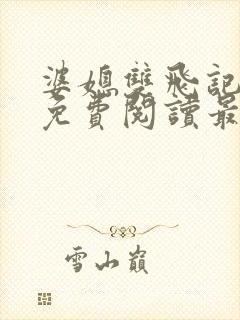 婆媳雙飛記
免費閱讀最
雪山巔